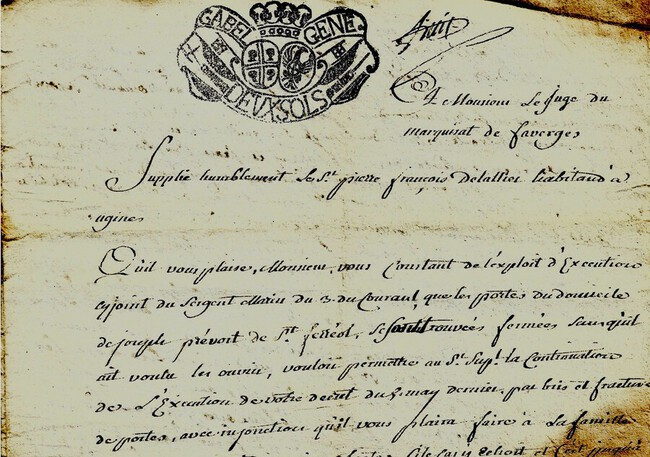 GABEL GENE
DEVX SOLS
A Monsieur Le Juge du
marquisat de faverges
Supplie humblement le Sr. pierre françois Delallier habitand à
ugines
Quil vous plaise, Monsieur, vous Constant de l'exploit d'Execution
cy joint du Sergent Marin du 3. du Courant, que les portes du domicile
de joseph prévoit de St. ferréol, se sont trouvées fermées sans qu'il
ait voulu les ouvrir, vouloir permettre au St. Supt. la Continuation
de L'Execution de votre decret du 5. may dernier, par bris et fracture
de portes, avec injonction qu'il vous plaira faire à la famille
et jusqu'à